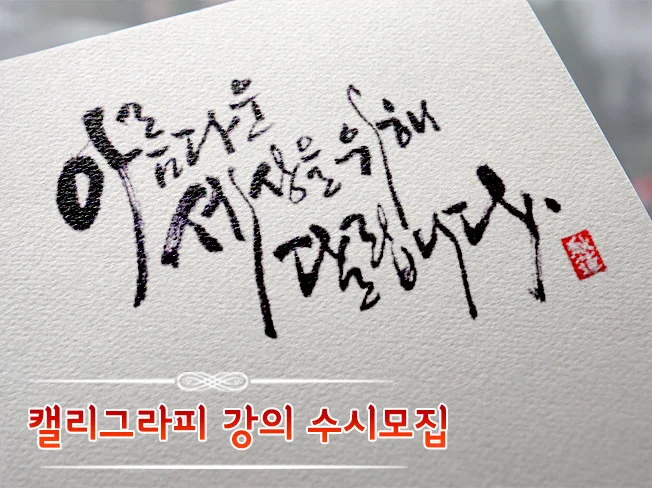 아름다운
세상을 위해
달립니다.
캘리그라피 강의 수시모집